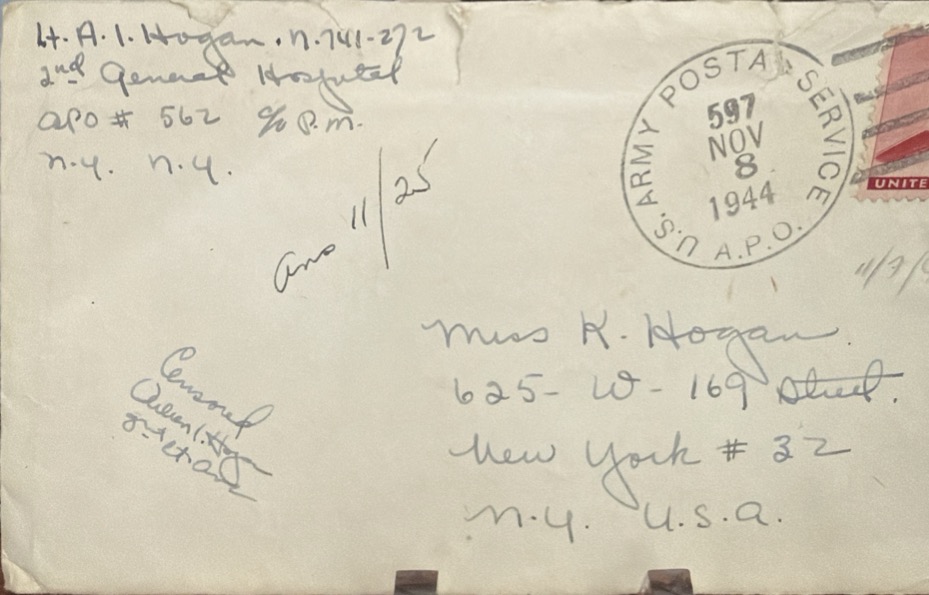 Lt. A. I. Hogan. N.741-272
2nd General Hospital
APO # 562 c/o P.M.
N.Y. N.Y.
U.S. ARMY POSTAL SERVICE
597
NOV
8
1944
A.P.O.
UNITE
Ans 11/25
11/7/
Miss K. Hogan
625- W- 169 Street.
New York # 32
N.Y. U.S.A.
Censored
I. Hogan
2nd Lt.